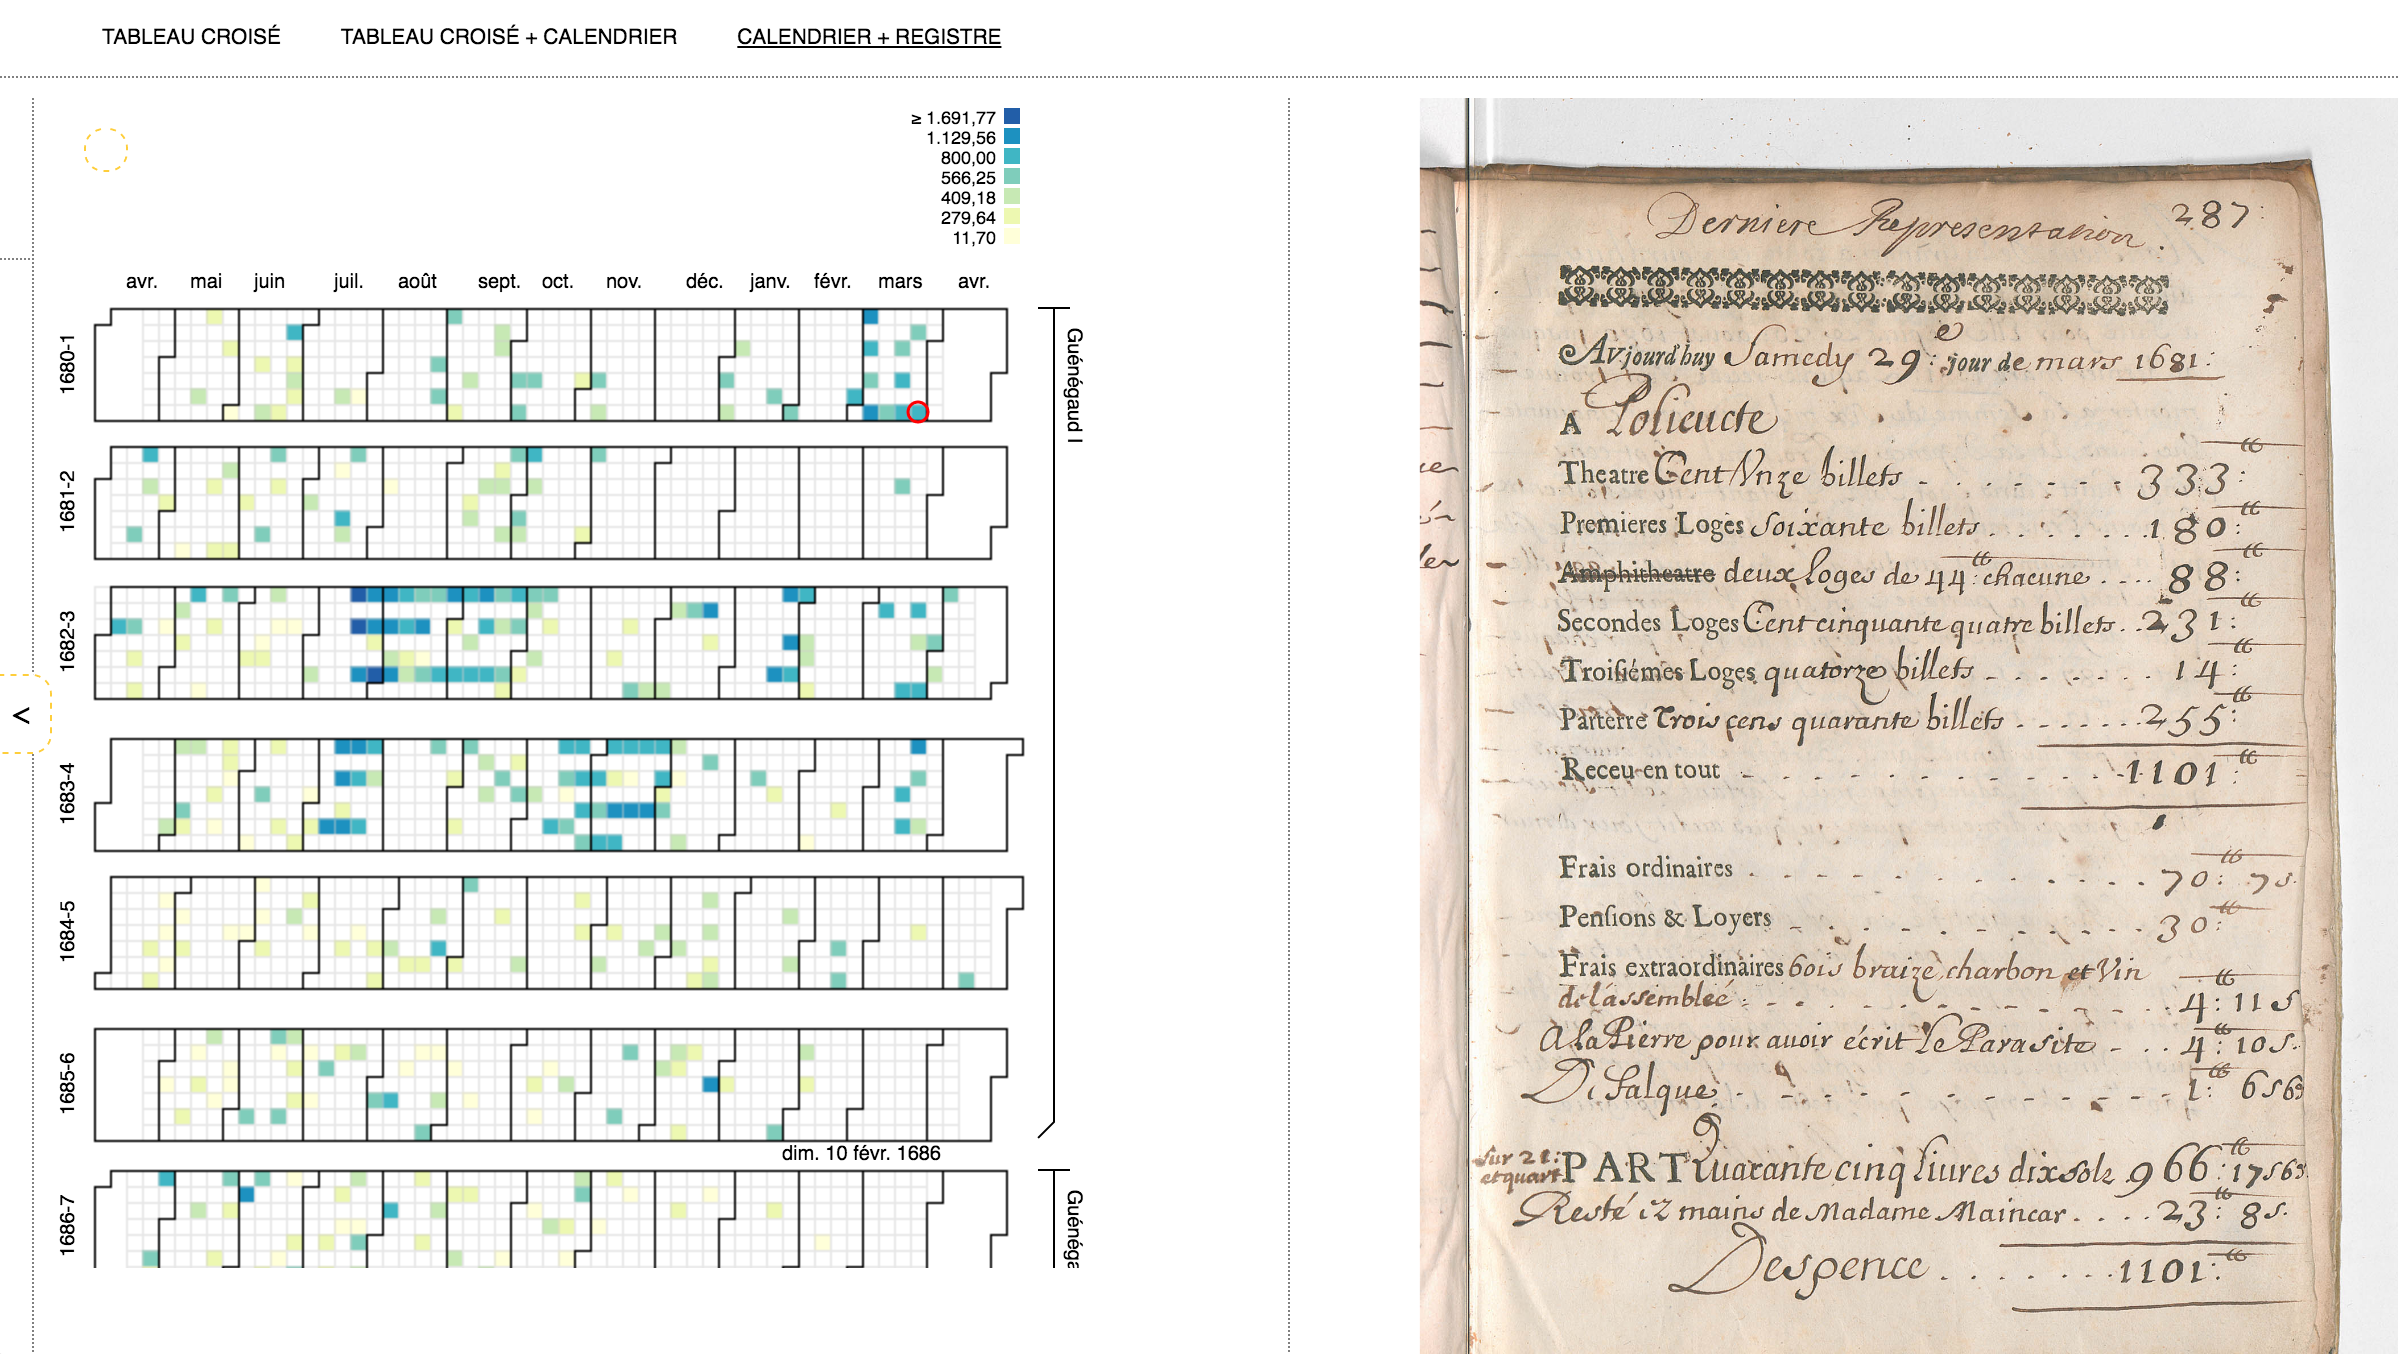 TABLEAU CROISÉ TABLEAU CROISÉ + CALENDRIER CALENDRIER + REGISTRE
≥ 1.691,77
1.129,56
800,00
566,25
409,18
279,64
11,70
avr. mai juin juil. août sept. oct. nov. déc. janv. févr. mars avr.
1680-1
1681-2
1682-3
1683-4
1684-5
1685-6
1686-7
Guénégaud I
dim. 10 févr. 1686
Guénéga
<
Derniere Representation. 287:
Avjourd'huy Samedy 29:e jour de mars 1681:
A Polieucte
Theatre Cent Vnze billets - - - - - - - 333:tt
Premieres Loges Soixante billets . . . . . . . 180:tt
Amphitheatre deux loges de 44:tt chacune . . . . 88:tt
Secondes Loges Cent cinquante quatre billets . . 231:tt
Troisiémes Loges quatorze billets - - - - - - - 14:tt
Parterre Trois cens quarante billets - - - - - - 255:tt
Receu en tout - - - - - - - - - - - 1101:tt
Frais ordinaires . . . . . . . . . . . . 70:tt 7s.
Pensions & Loyers - - - - - - - - - - - 30:tt
Frais extraordinaires bois braize charbon et Vin
de l'assemblée - - - - - - - - - - - - 4:tt 11s
A la Pierre pour auoir écrit le Parasite - - . . 4:tt 10s.
- - - - - - - - - - - - 1:tt 6s6d
Sur 21:
et quart PART Quarante cinq liures dix solz 966:tt 17s6d
Resté ez mains de Madame . . . . 23:tt 8s.
Despence . . . . . . . 1101:tt